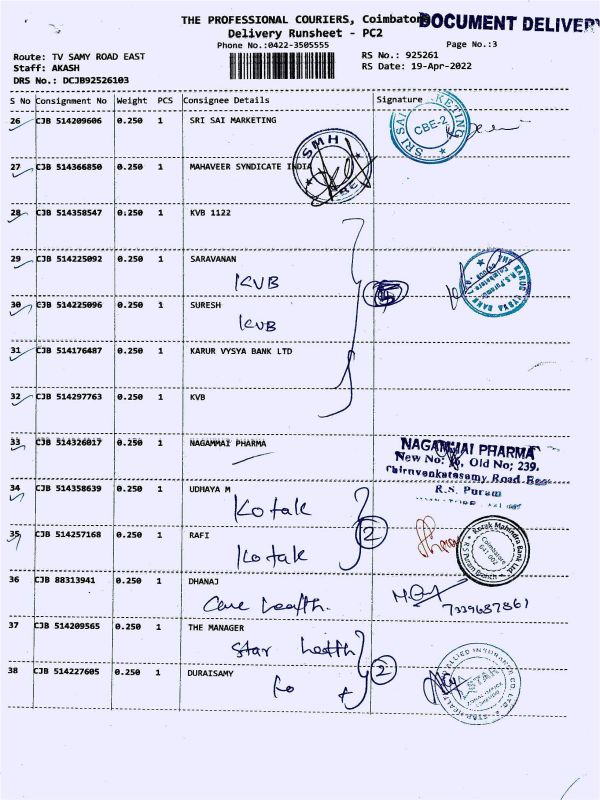 THE PROFESSIONAL COURIERS, Coimbatore
DOCUMENT DELIVERY
Delivery Runsheet - PC2
Phone No.:0422-3505555
Page No.:3
Route: TV SAMY ROAD EAST
RS No.: 925261
Staff: AKASH
RS Date: 19-Apr-2022
DRS No.: DCJB92526103
S No Consignment No Weight PCS Consignee Details Signature
26 CJB 514209606 0.250 1 SRI SAI MARKETING
SRI SAI MARKETING
CBE-2
SMH
27 CJB 514366850 0.250 1 MAHAVEER SYNDICATE INDIA
28 CJB 514358547 0.250 1 KVB 1122
29 CJB 514225092 0.250 1 SARAVANAN
KVB
5
30 CJB 514225096 0.250 1 SURESH
KVB
31 CJB 514176487 0.250 1 KARUR VYSYA BANK LTD
32 CJB 514297763 0.250 1 KVB
33 CJB 514326017 0.250 1 NAGAMMAI PHARMA
NAGAMMAI PHARMA
Old No; 239.
R.S. Puram
34 CJB 514358639 0.250 1 UDHAYA M
Kotak
2
35 CJB 514257168 0.250 1 RAFI
Kotak
Kotak Mahindra Bank Ltd.
Coimbatore
641 002
36 CJB 88313941 0.250 1 DHANAJ
Care health.
7339687861
37 CJB 514209565 0.250 1 THE MANAGER
Star health
2
38 CJB 514227605 0.250 1 DURAISAMY